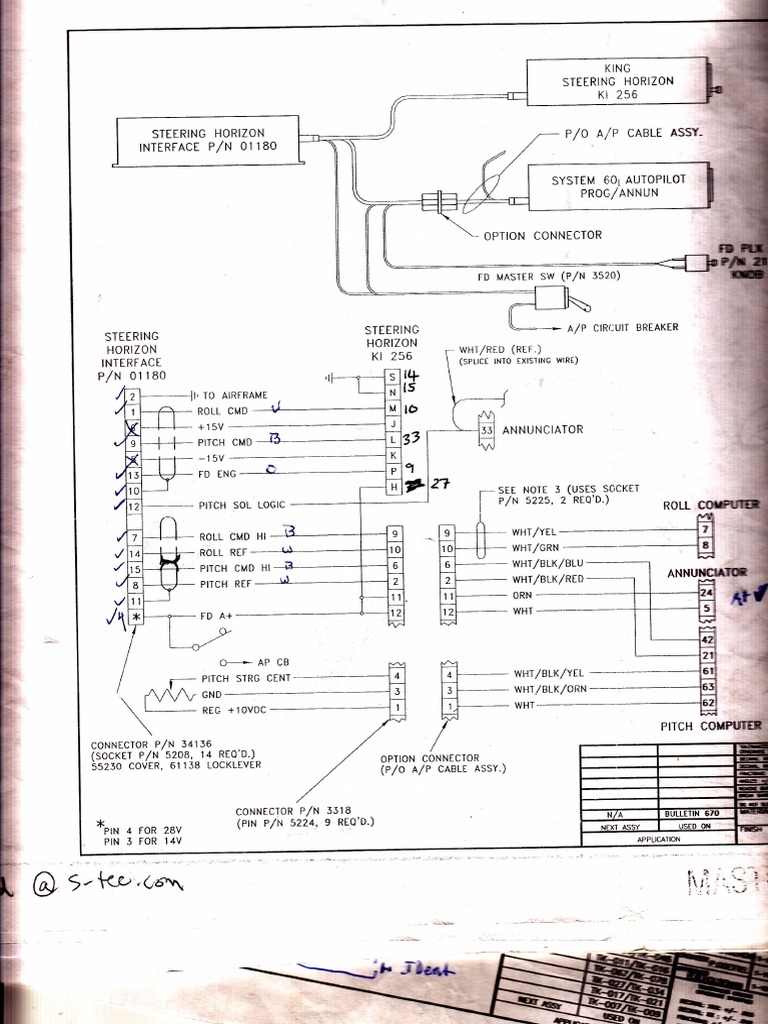 KING
STEERING HORIZON
KI 256
STEERING HORIZON
INTERFACE P/N 01180
P/O A/P CABLE ASSY.
SYSTEM 60, AUTOPILOT
PROG/ANNUN
OPTION CONNECTOR
FD PLK
P/N 21
KNOB
FD MASTER SW (P/N 3520)
A/P CIRCUIT BREAKER
STEERING
HORIZON
INTERFACE
P/N 01180
STEERING
HORIZON
KI 256
WHT/RED (REF.)
(SPLICE INTO EXISTING WIRE)
S 14
N 15
2 TO AIRFRAME
1 ROLL CMD M 10
+15V J
33 ANNUNCIATOR
9 PITCH CMD B L 33
-15V K
13 FD ENG O P 9
10 H 27
12 PITCH SOL LOGIC
SEE NOTE 3 (USES SOCKET
P/N 5225, 2 REQ'D.)
ROLL COMPUTER
7 ROLL CMD HI B 9 9 WHT/YEL 7
14 ROLL REF W 10 10 WHT/GRN 8
15 PITCH CMD HI B 6 6 WHT/BLK/BLU
ANNUNCIATOR
8 PITCH REF W 2 2 WHT/BLK/RED
11 11 11 ORN 24
* FD A+ 12 12 WHT 5
A+
42
21
AP CB
PITCH STRG CENT 4 4 WHT/BLK/YEL 61
GND 3 3 WHT/BLK/ORN 63
REG +10VDC 1 1 WHT 62
PITCH COMPUTER
CONNECTOR P/N 34136
(SOCKET P/N 5208, 14 REQ'D.)
55230 COVER, 61138 LOCKLEVER
OPTION CONNECTOR
(P/O A/P CABLE ASSY.)
CONNECTOR P/N 3318
(PIN P/N 5224, 9 REQ'D.)
*PIN 4 FOR 28V
PIN 3 FOR 14V
N/A BULLETIN 670
NEXT ASSY USED ON
APPLICATION
FINISH
@ s-tec.com
MAST
Ident
NEXT ASSY
USED ON